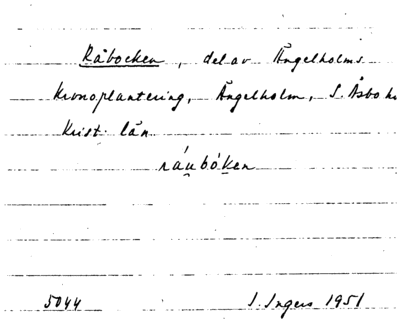 Råbocken, del av Ängelholms
Kronoplantering, Ängelholm, S. Åsbo h
Krist. län
ráu̯bók̬en
5044 I. Ingers 1951